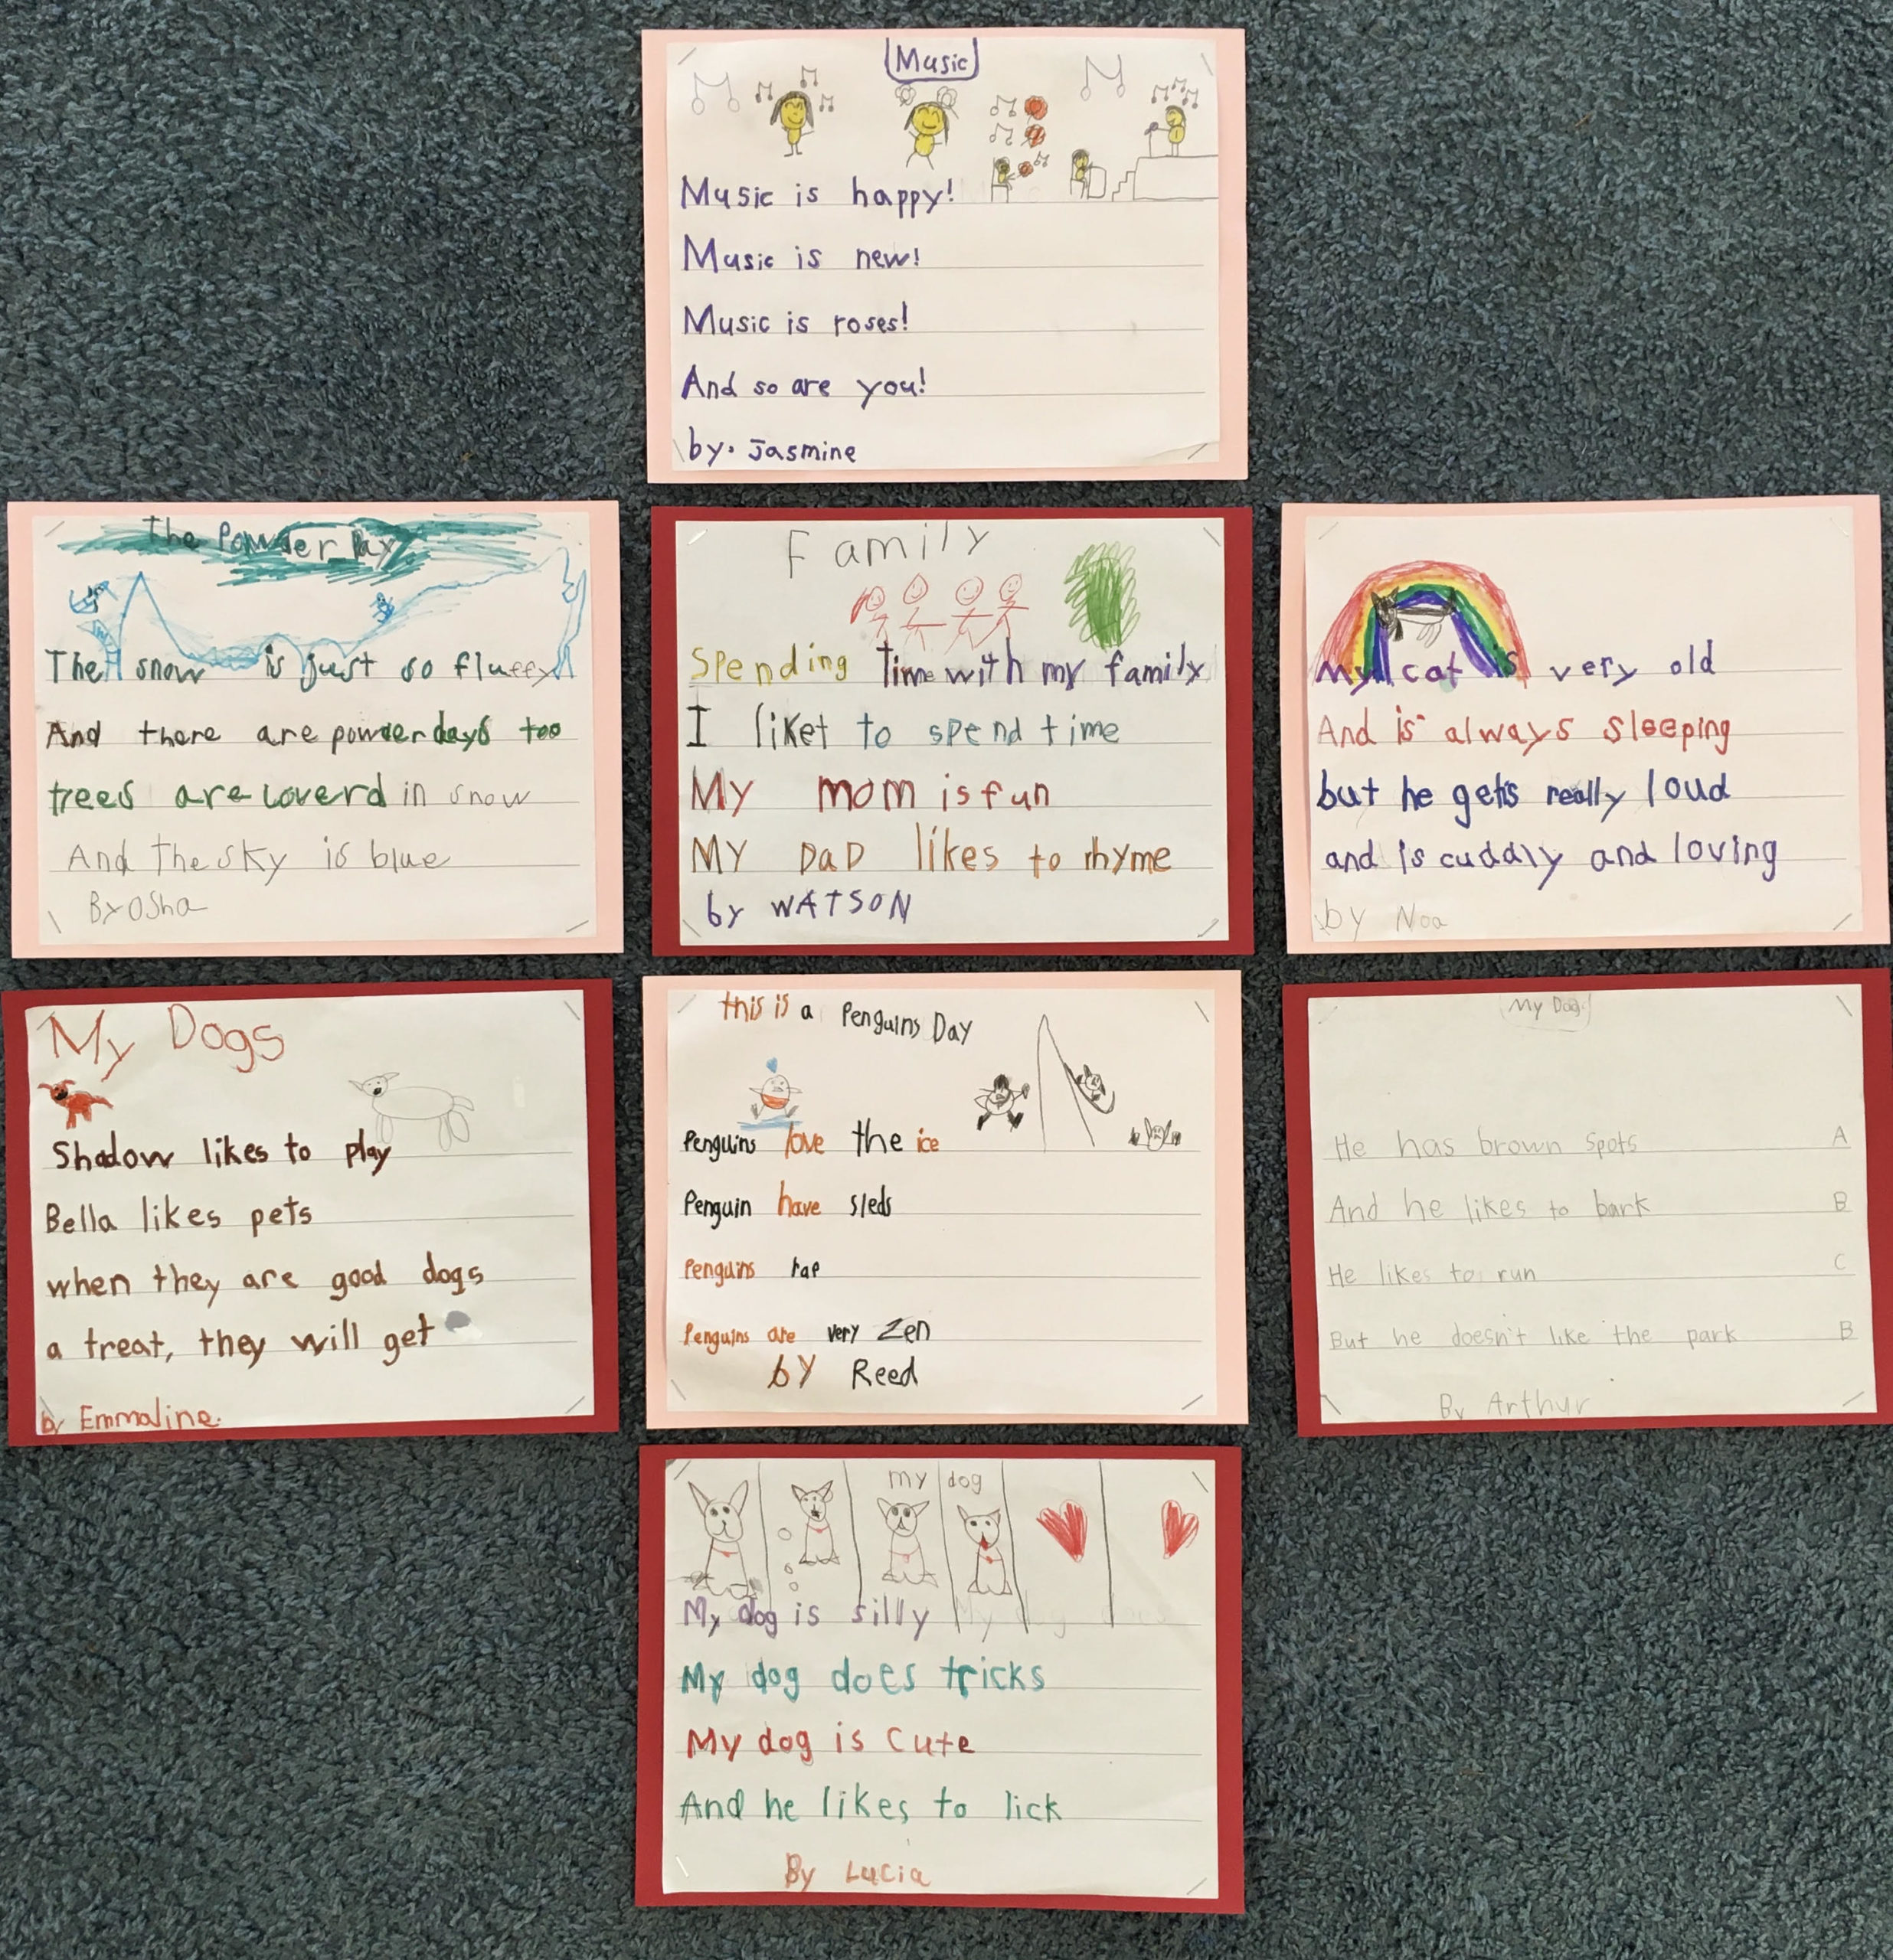 Music
Music is happy!
Music is new!
Music is roses!
And so are you!
by. Jasmine
The Powder Day
The snow is just so fluffy
And there are powder days too
trees are coverd in snow
And the sky is blue
By Osha
Family
Spending Time with my family
I liket to spend time
My mom is fun
MY DaD likes to rhyme
by WATSON
My cat is very old
And is always sleeping
but he gets really loud
and is cuddly and loving
by Noa
My Dogs
Shadow likes to play
Bella likes pets
when they are good dogs
a treat, they will get
by Emmaline.
this is a Penguins Day
Penguins love the ice
Penguin have sleds
Penguins rap
Penguins are very Zen
by Reed
My Dog!
He has brown Spots A
And he likes to bark B
He likes to run C
But he doesn't like the park B
By Arthur
my dog
My dog is silly
My dog does tricks
My dog is Cute
And he likes to lick
By Lucia